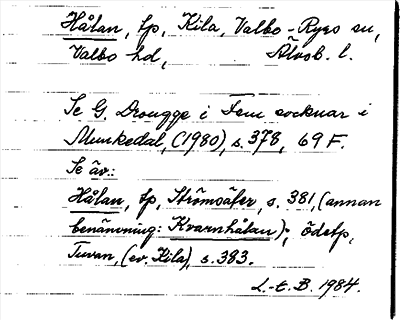 Hålan, tp, Kila, Valbo-Ryrs sn,
Valbo hd, Älvsb. l.
Se G. Drougge i Fem socknar i
Munkedal, (1980), s. 378, 69 F.
Se äv.:
Hålan, tp, Strömsäter, s. 381, (annan
benämning: Kvarnhålan); ödetp,
Tuvan, (ev. Kila), s. 383.
L-E. B. 1984.